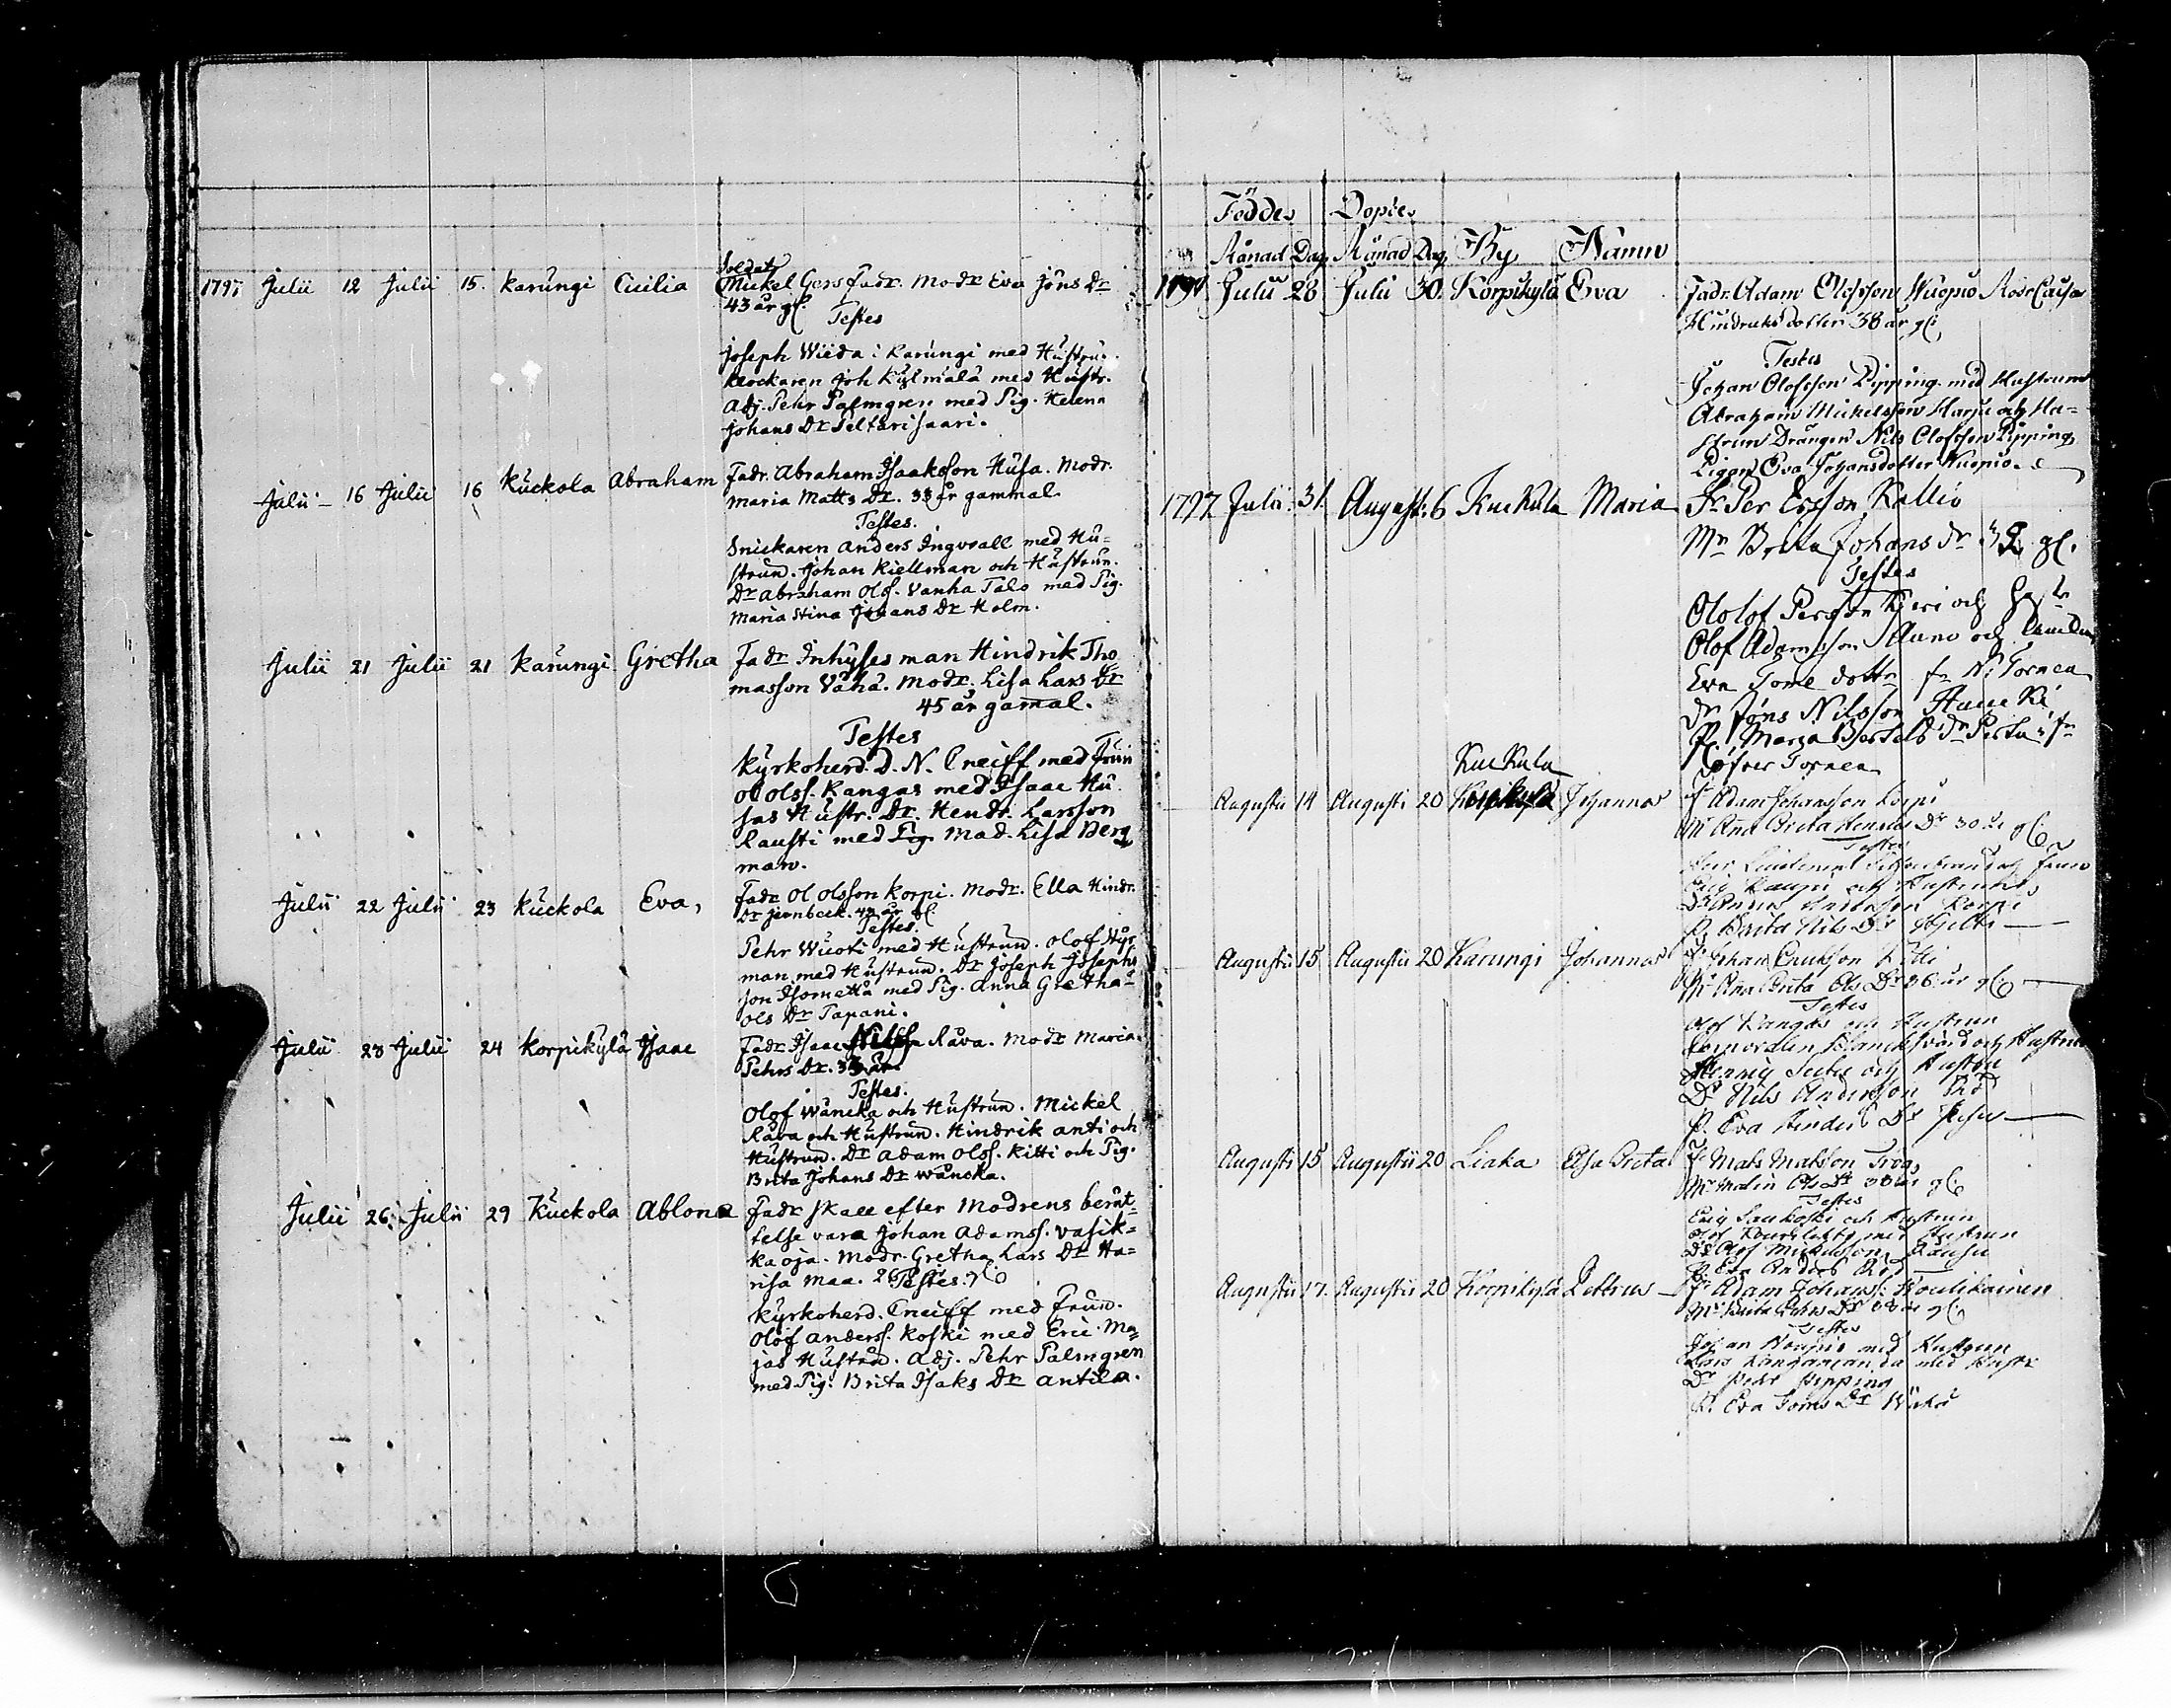 1797 Julii 12 Julii 15. Karungi Cicilia
Soldat
Mickel Gers fadr. Modr Eva Jöns Dr
43 år gl.
Testes
Joseph Wiida i Karungi med Hustru.
Klockaren Joh Kylmälä med Hustr.
Adj. Pehr Palmgren med Pig. Helena
Johans Dr Peltarisaari.
Julii 16 Julii 16 Kuckola Abraham
Fadr. Abraham Isaaksson Husa. Modr.
Maria Matts Dr. 33 år gammal
Testes.
Snickaren Anders Ingvall med Hu=
strun. Johan Kiellman och Hustrun.
Dr Abraham Olof. Vanha Talo med Pig.
Maria Stina Johans Dr Holm.
Julii 21 Julii 21 Karungi Gretha
Fadr Inhyses man Hindrik Tho
masson Vähä. Modr. Lisa Lars Dr
45 år gamal.
Testes
Kyrkoherd. D. N. Cneiff med Frun
Ol Olss. Kangas med Isaac Hu
sas Hustr. Dr. Hendr. Larsson
Rausti med Pig. Mad. Lisa Berg
man.
Julii 22 Julii 23 Kuckola Eva,
Fadr Ol Olsson Korpi. Modr. Ella Hindr.
Dr år gl.
Testes.
Pehr Wuoti med Hustrun. Olof Nyr
man med Hustrun. Dr Joseph Josephs
son Isometta med Pig. Anna Gretha
Ols Dr Tapani.
Julii 23 Julii 24 Korpikylä Isaac
Fadr Isaac Nilss Råva. Modr Maria
Pehrs Dr. 33 år
Testes.
Olof Wäncka och Hustrun. Mickel
Råva och Hustrun. Hindrik Anti och
Hustrun. Dr Adam Olof. Kitti och Pig.
Brita Johans Dr Wäncka.
Julii 26 Julii 29 Kuckola Ablona
Fadr skall efter Modrens berät=
telse vara Johan Adamss. Vasik=
ka oja. Modr. Gretha Lars Dr Ha=
risa maa. 26 år gl.
Testes.
Kyrkoherd. Cneiff med Frun.
Olof Anderss. Koski med Eric Ma=
jas Hustru. Adj. Pehr Palmgren
med Pig. Brita Isaks Dr Antila.
Föddes Döptes
Månad Dag Månad Dag By Namn
1797 Julii 28 Julii 30. Korpikylä Eva
Fadr. Adam Olofsson Wuopio Modr Caisa
Hindricksdotter 38 år gl.
Testes
Johan Olofsson Pipping med Hustrun
Abraham Mickelsson Harju och Hu=
strun Drängen Nils Olofsson Pipping
Pigan Eva Johansdotter Wuopio.
1797 Julii. 31. August: 6 Kuckula Maria
Fr Per Ersson Kallio
Mr Brita Johans dr 32 gl.
Testes
Olof Persson och
Olof Adamsson och
Eva dottr fr N. Tornea
Dr Jöns Nilsson
P. Marga Bertils dr fr
öfver Tornea
Augustii 14 Augusti 20 Kuckula Johannes
Fr Adam Johansson Korpi
Mr Ana Brita Dr 30 år gl.
Testes
och Hustrun
P. Brita Nils Dr
Augustii 15 Augustii 20 Karungi Johannes
Fr Johan Ericksson Kitti
Mr Ana Brita Ols Dr 36 år gl.
Testes
Olof Kangas och Hustrun
och Hustrun
och Hustru
Dr Nils Andersson
P. Eva Dr
Augusti 15 Augustii 20 Liaka Elsa Brita
Fr Mats Matsson
Mr Malin Ols Dr 38 år gl.
Testes
och Hustrun
med Hustrun
Dr Olof Mickelsson
P. Eva Anders
Augustii 17. Augustii 20 Korpikylä Pettrus
Fr Adam Johans: Koulikainen
Mr Brita Dr 38 år gl.
Testes
Johan med Hustrun
Lars med Hustr
Dr Pehr Pipping
P. Eva Dr Wähä